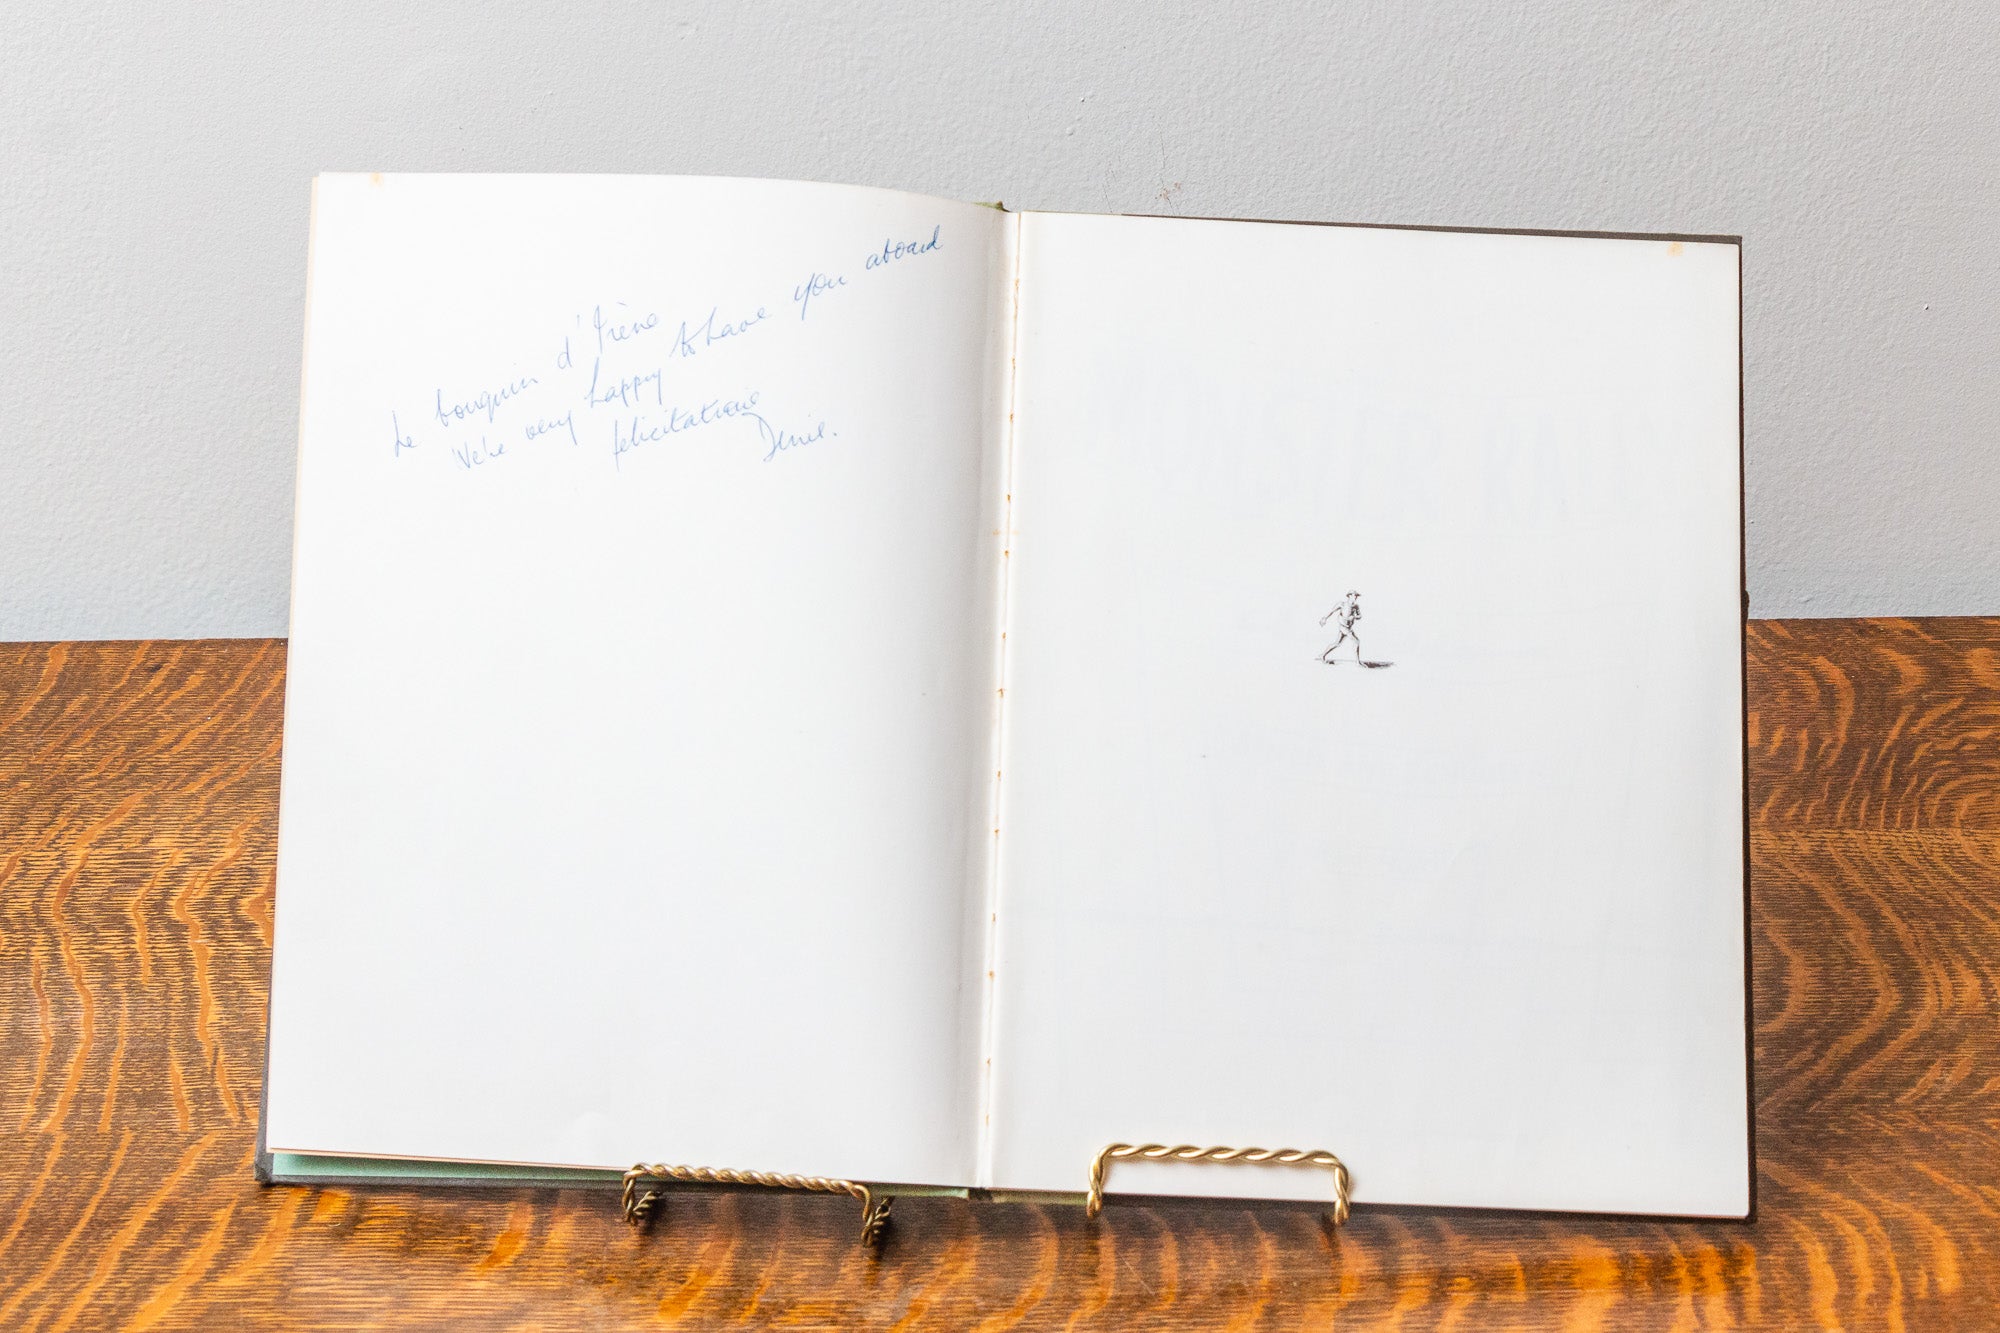 Le bouquin d'Irène
We're very happy to have you aboard
felicitations
Denis.